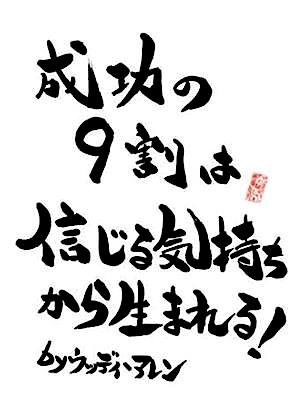 成功の
9割は
信じる気持ち
から生まれる!
byウッディ・アレン